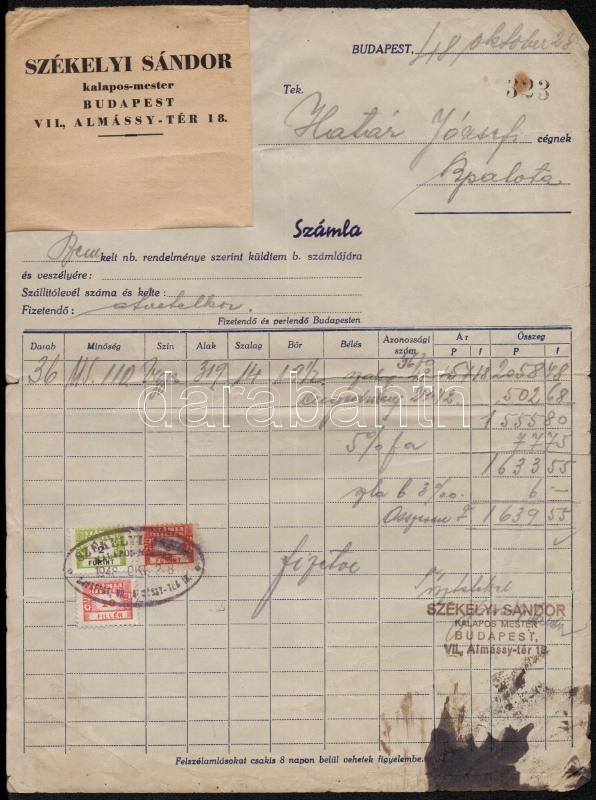 SZÉKELYI SÁNDOR
kalapos-mester
BUDAPEST
VII., ALMÁSSY-TÉR 18.
BUDAPEST, 48 október 28
323
Tek.
Határ József cégnek
Bpalota
Számla
kelt nb. rendelménye szerint küldtem b. számlájára
és veszélyére:
Szállitólevél száma és kelte:
Fizetendő: átvételkor.
Fizetendő és perlendő Budapesten
Darab Minőség Szin Alak Szalag Bőr Bélés Azonossági szám Ár P f Összeg P f
36 110 319 14 2058 48
502 68
1555 80
5% fa 77 75
1633 55
6 —
Összesen F 1639 55
fizetve
FORINT
FILLÉR
SZÉKELYI
1948 OKT 28
SZÉKELYI SÁNDOR
KALAPOS MESTER
BUDAPEST,
VII., Almássy-tér 18.
Felszólamlásokat csakis 8 napon belül vehetek figyelembe.
darabanth